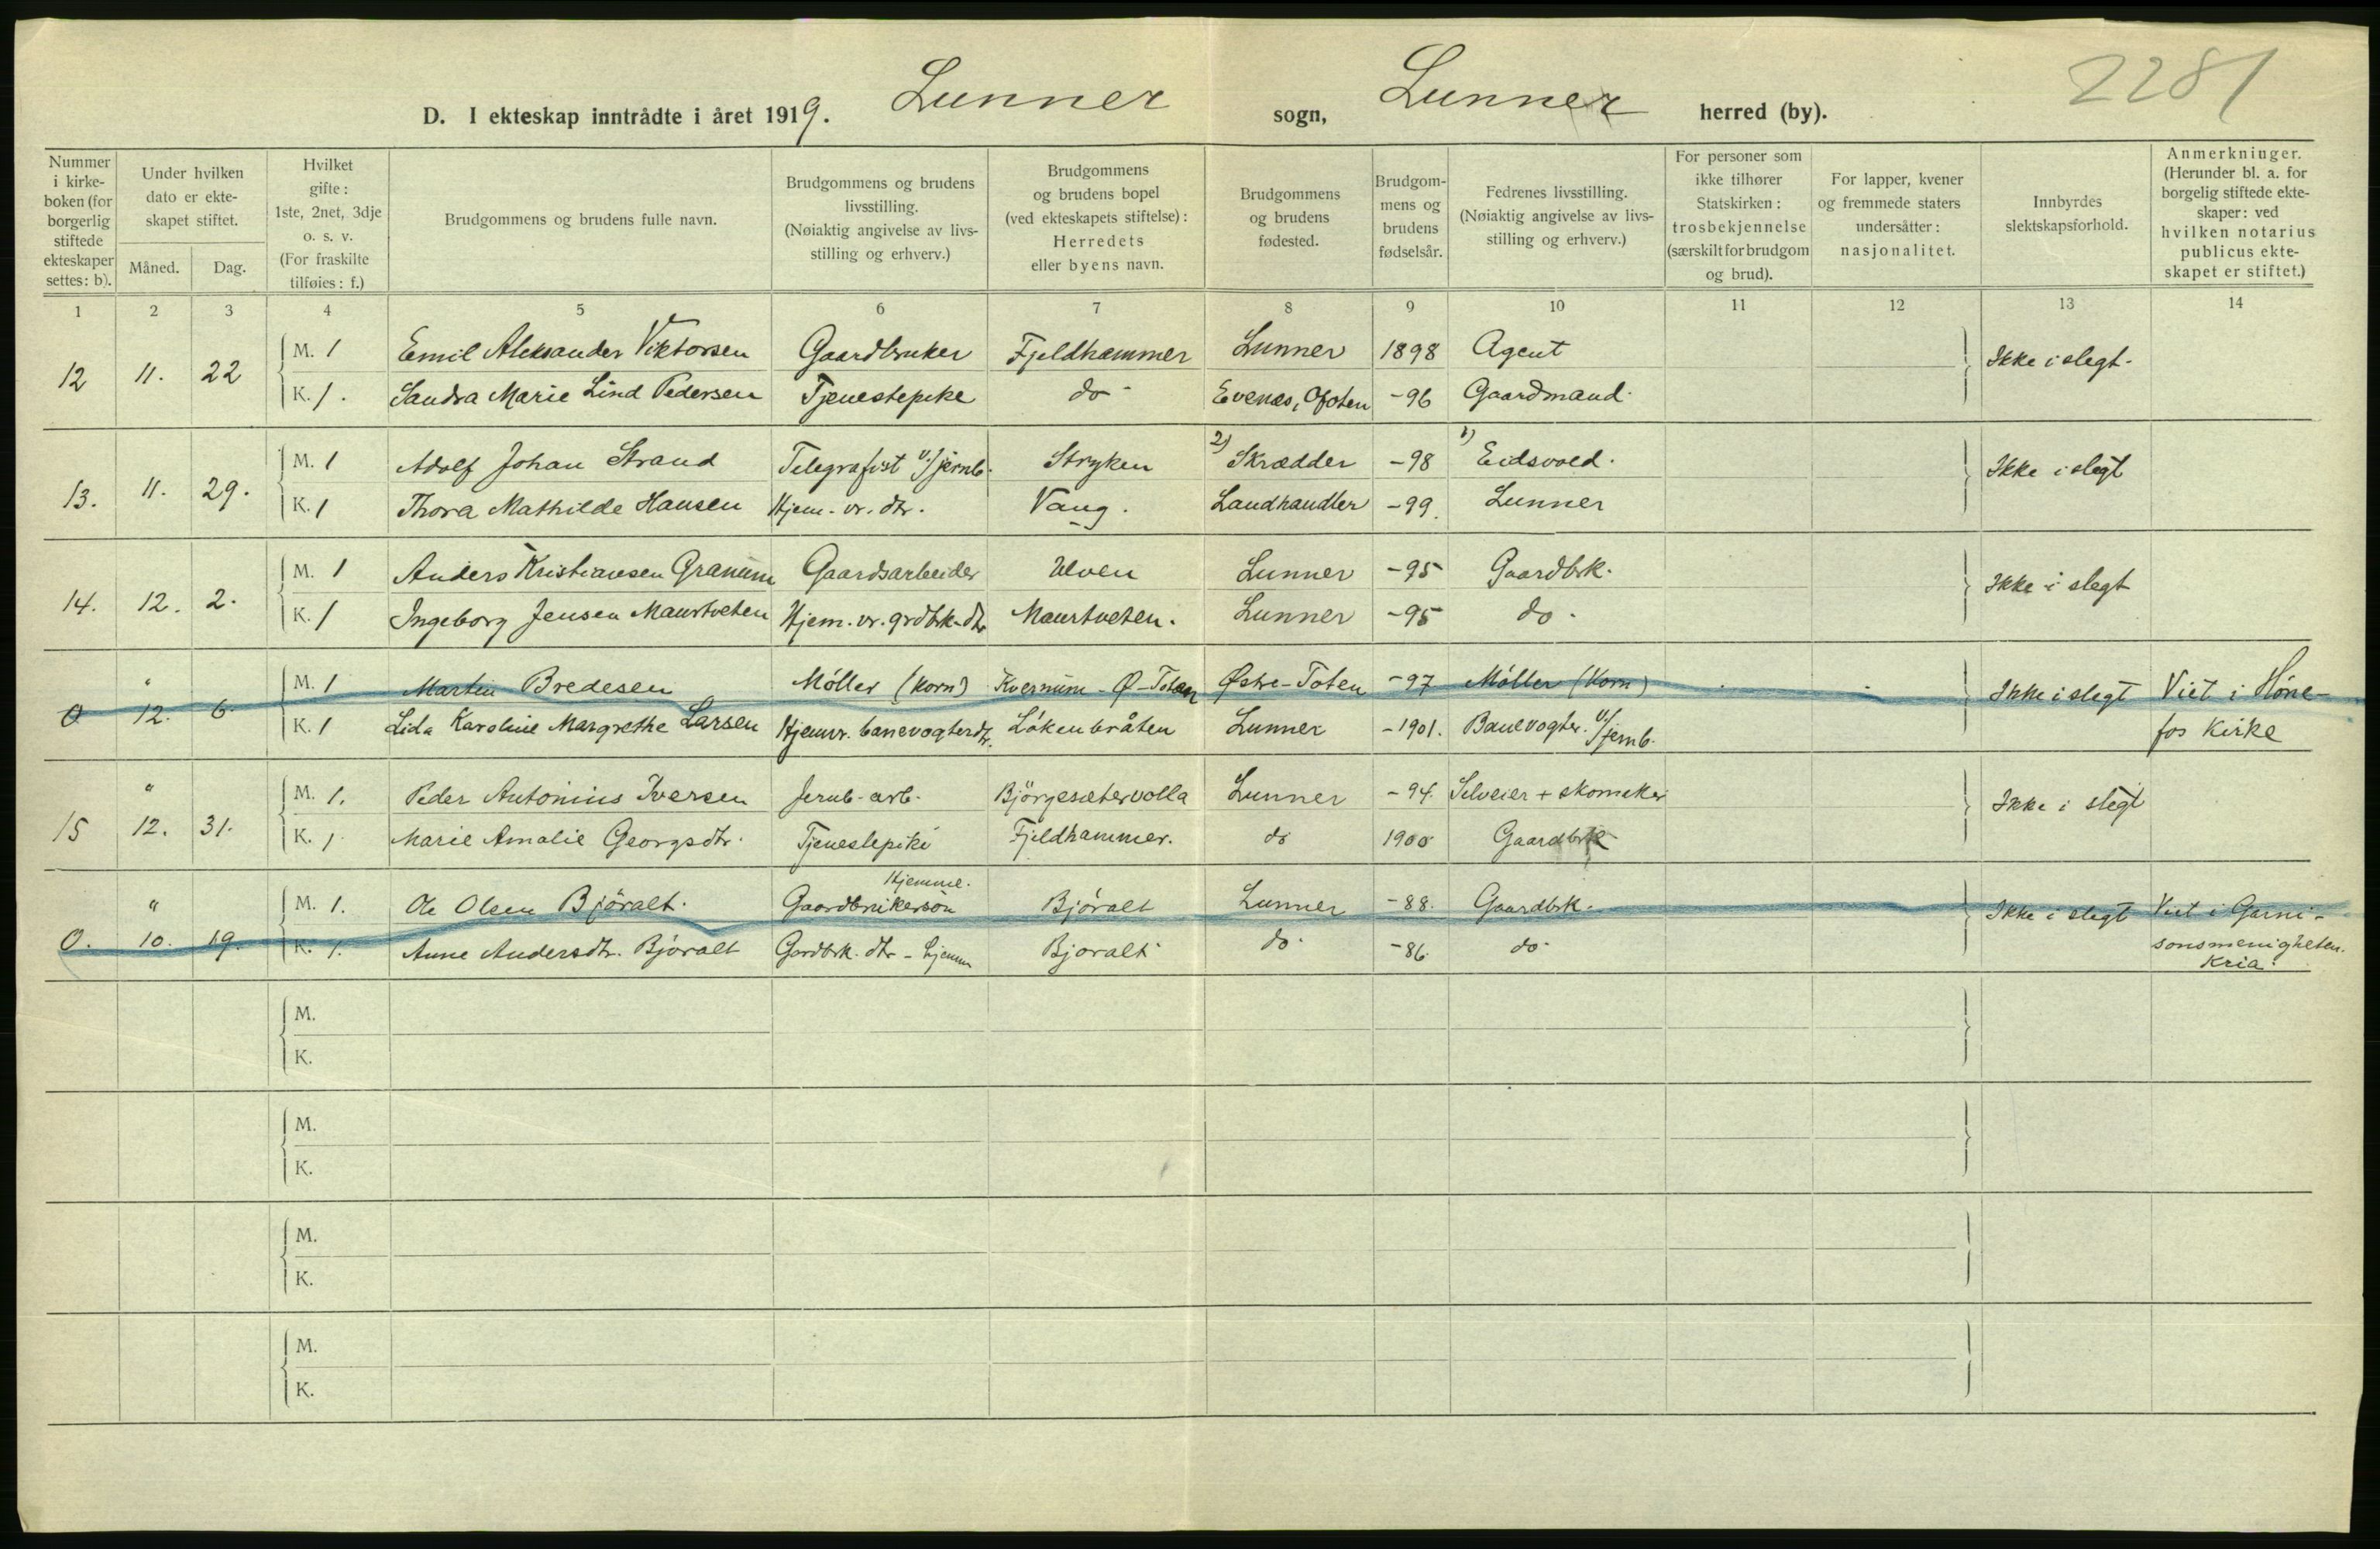 2281
D. I ekteskap inntrådte i året 1919. Lunner sogn, Lunner herred (by).
Nummer i kirke-boken (for borgerlig stiftede ekteskaper settes: b).
Under hvilken dato er ekte-skapet stiftet.
Måned. Dag.
Hvilket gifte: 1ste, 2net, 3dje o. s. v. (For fraskilte tilføies: f.)
Brudgommens og brudens fulle navn.
Brudgommens og brudens livsstilling. (Nøiaktig angivelse av livs-stilling og erhverv.)
Brudgommens og brudens bopel (ved ekteskapets stiftelse): Herredets eller byens navn.
Brudgommens og brudens fødested.
Brudgom-mens og brudens fødselsår.
Fedrenes livsstilling. (Nøiaktig angivelse av livs-stilling og erhverv.)
For personer som ikke tilhører Statskirken: trosbekjennelse (særskilt for brudgom og brud).
For lapper, kvener og fremmede staters undersåtter: nasjonalitet.
Innbyrdes slektskapsforhold.
Anmerkninger. (Herunder bl. a. for borgelig stiftede ekte-skaper: ved hvilken notarius publicus ekte-skapet er stiftet.)
1 2 3 4 5 6 7 8 9 10 11 12 13 14
12 11. 22 M. 1 Emil Aleksander Viktorsen Gaardbruker Fjeldhammer Lunner 1898 Agent Ikke i slegt.
K. 1. Sandra Marie Lind Pedersen Tjenestepike do Evenæs, Ofoten -96 Gaardmand.
13. 11. 29. M. 1 Adolf Johan Strand Telegrafist v/jernb. Stryken 2) Skrædder -98 1) Eidsvold. Ikke i slegt
K. 1 Thora Mathilde Hansen Hjem. vr. dtr. Vang. Landhandler -99. Lunner
14. 12. 2. M. 1 Anders Kristiansen Granum Gaardsarbeider Ulven Lunner -95 Gaardbrk. Ikke i slegt
K. 1 Ingeborg Jensen Maurtveten Hjem. vr. grdbrk-dtr Maurtveten. Lunner -95 do.
0 " 12. 6. M. 1 Martin Bredesen Møller (korn) Kvernum - Ø-Toten Østre-Toten -97 Møller (korn) Ikke i slegt Viet i Høne-
K. 1 Lida Karoline Margrethe Larsen Hjemvr. banevogterdtr. Løkenbråten Lunner -1901. Banevogter v/jernb. fos kirke
15 " 12. 31. M. 1. Peder Antonius Iversen Jernb-arb. Bjørgesætervolla Lunner -94. Selveier + skomaker Ikke i slegt
K. 1 Marie Amalie Georgsdtr. Tjenestepike Fjeldhammer. do 1900 Gaardbrk
Hjemme.
0. " 10. 19. M. 1. Ole Olsen Bjøralt. Gaardbrukersøn Bjøralt Lunner -88. Gaardbrk. Ikke i slegt Viet i Garni-
K. 1. Anne Andersdtr. Bjøralt Gardbrk. dtr - hjemme Bjøralt do. -86. do. sonsmenigheten.
Kria.
M.
K.
M.
K.
M.
K.
M.
K.